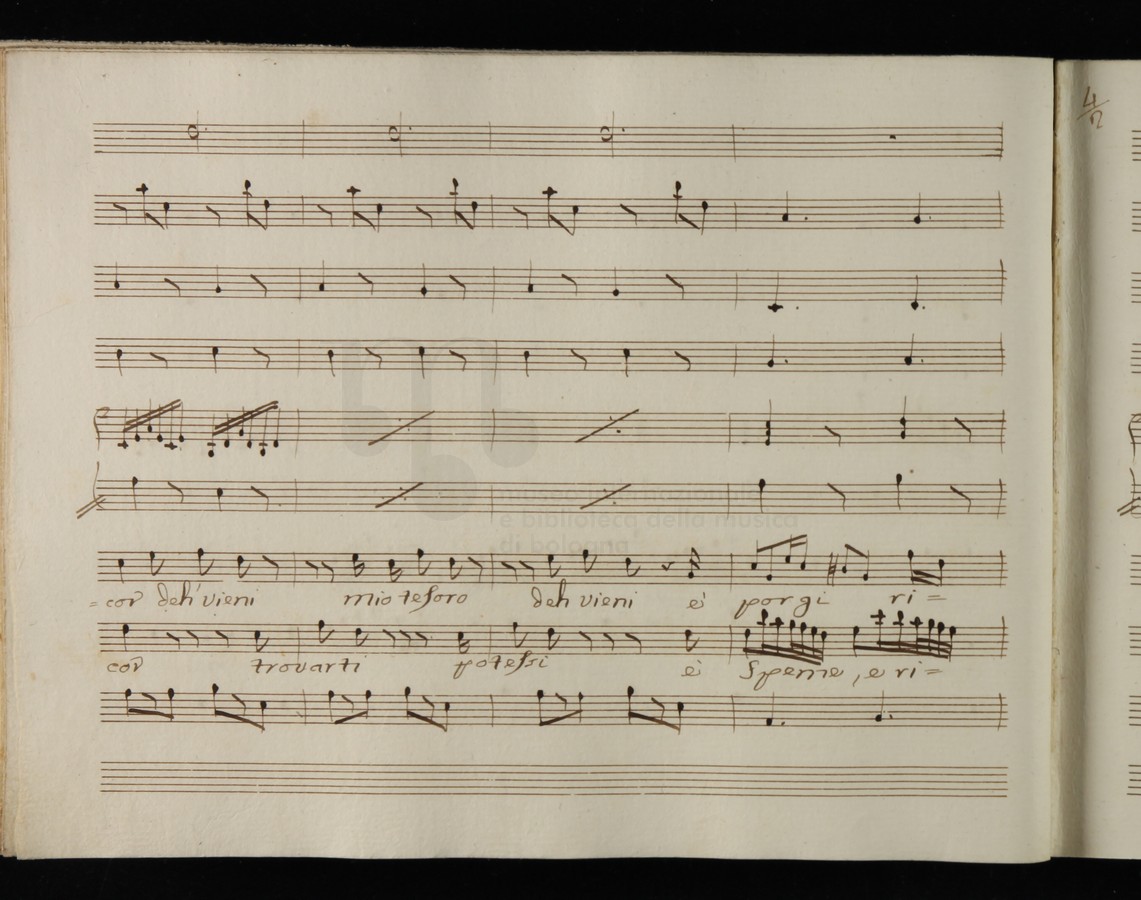 4/2
museo internazionale
e biblioteca della musica
di bologna
= cor deh' vieni mio tesoro deh vieni e' porgi ri =
cor trovarti potessi e' Speme, e ri =